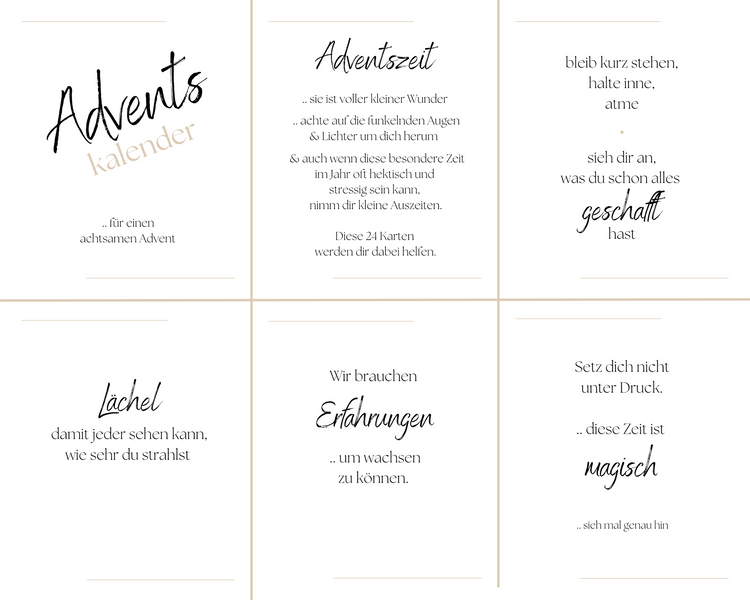 Advents
kalender
.. für einen
achtsamen Advent
Adventszeit
.. sie ist voller kleiner Wunder
.. achte auf die funkelnden Augen
& Lichter um dich herum
& auch wenn diese besondere Zeit
im Jahr oft hektisch und
stressig sein kann,
nimm dir kleine Auszeiten.
Diese 24 Karten
werden dir dabei helfen.
bleib kurz stehen,
halte inne,
atme
sieh dir an,
was du schon alles
geschafft
hast
Lächel
damit jeder sehen kann,
wie sehr du strahlst
Wir brauchen
Erfahrungen
.. um wachsen
zu können.
Setz dich nicht
unter Druck.
.. diese Zeit ist
magisch
.. sieh mal genau hin